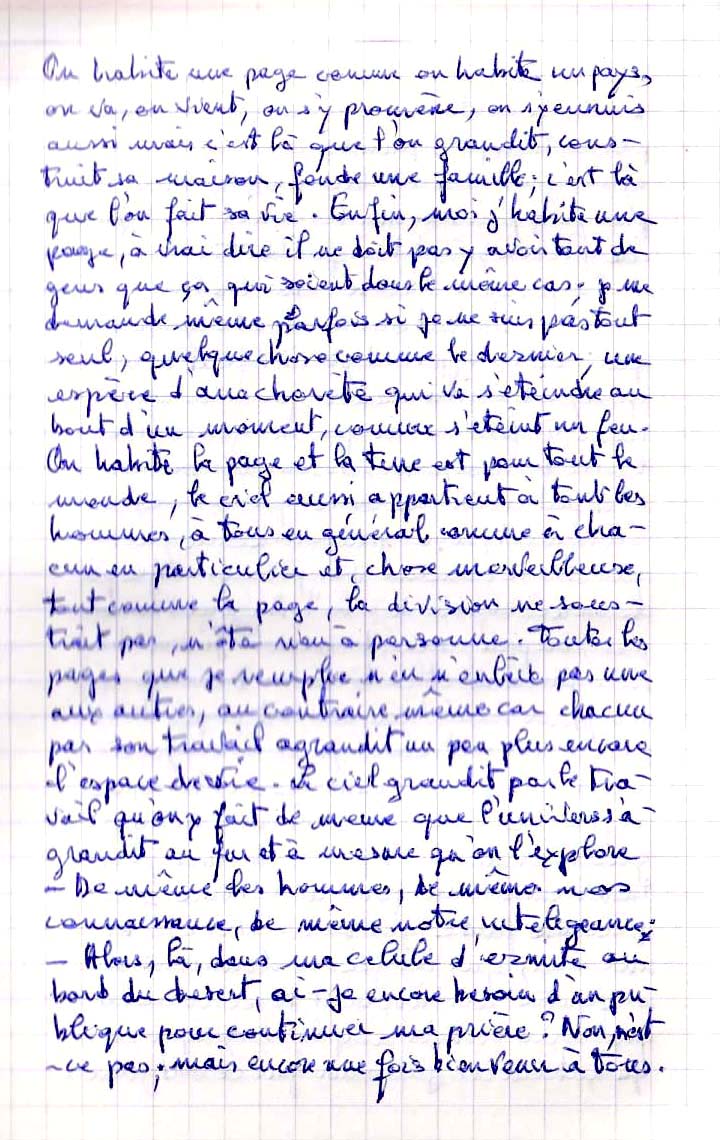 On habite une page comme on habite un pays,
on va, on vient, on s'y promène, on s'y ennuis
aussi mais c'est là que l'on grandit, cons-
truit sa maison, fonde une famille; c'est là
que l'on fait sa vie. Enfin, moi j'habite une
page, à vrai dire il ne doit pas y avoir tant de
gens que ça qui soient dans le même cas. je me
demande même parfois si je ne suis pas tout
seul, quelque chose comme le dernier, une
espèce d'anachorète qui va s'éteindre au
bout d'un moment, comme s'éteint un feu.
On habite la page et la terre est pour tout le
monde, le ciel aussi appartient à tout les
hommes, à tous en général comme à cha-
cun en particulier et, chose merveilleuse,
tout comme la page, la division ne sous-
trait pas, n'ôte rien à personne. Toutes les
pages que je remplie n'en n'enlève pas une
aux autres, au contraire même car chacun
par son travail agrandit un peu plus encore
l'espace de vie. Le ciel grandit par le tra-
vail qu'on y fait de meme que l'univers s'a-
grandit au fur et à mesure qu'on l'explore
- De même les hommes, de même nos
connaissance, de même notre inteligeance.
- Alors, là, dans ma celule d'ermite au
bord du desert, ai-je encore besoin d'un pu-
blique pour continuer ma prière? Non, n'est
-ce pas; mais encore une fois bienvenu à tous.